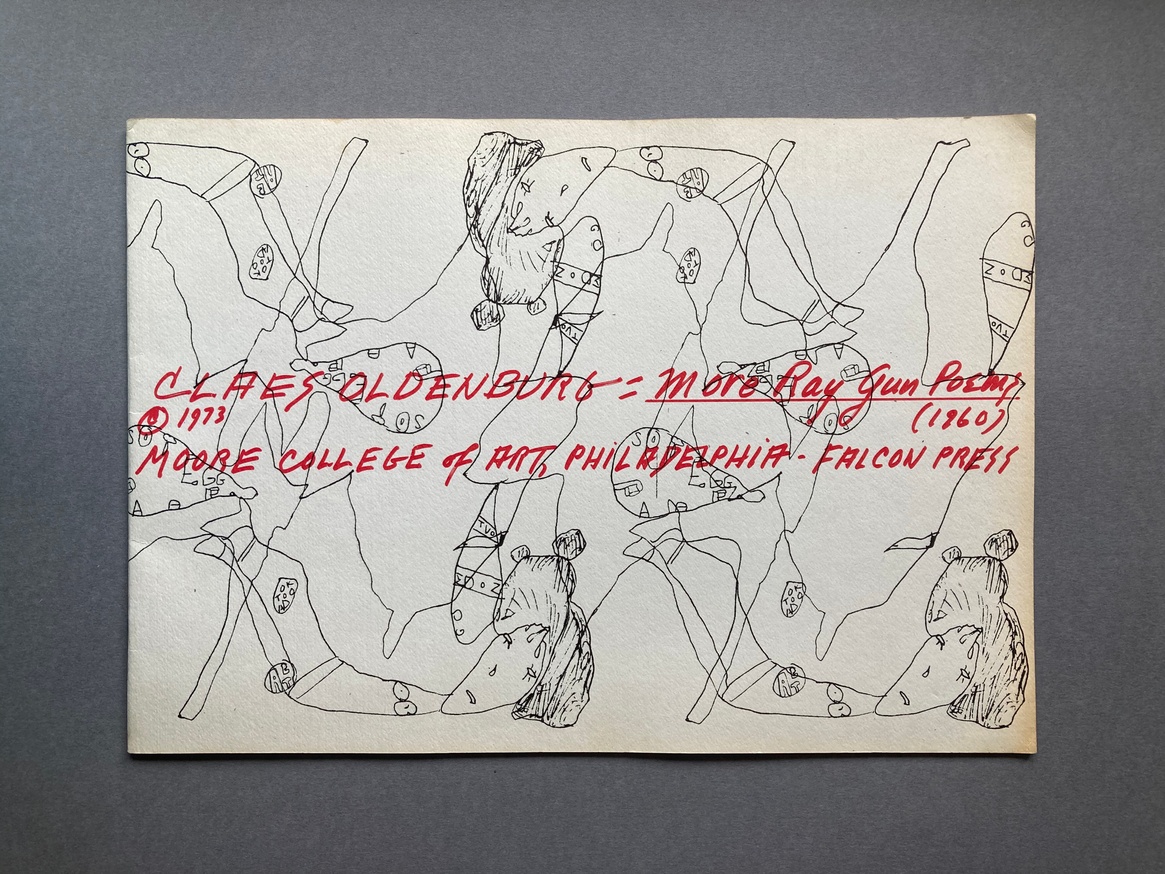 CLAES OLDENBURG = More Ray Gun Poems
© 1973 (1960)
MOORE COLLEGE of ART, PHILADELPHIA - FALCON PRESS